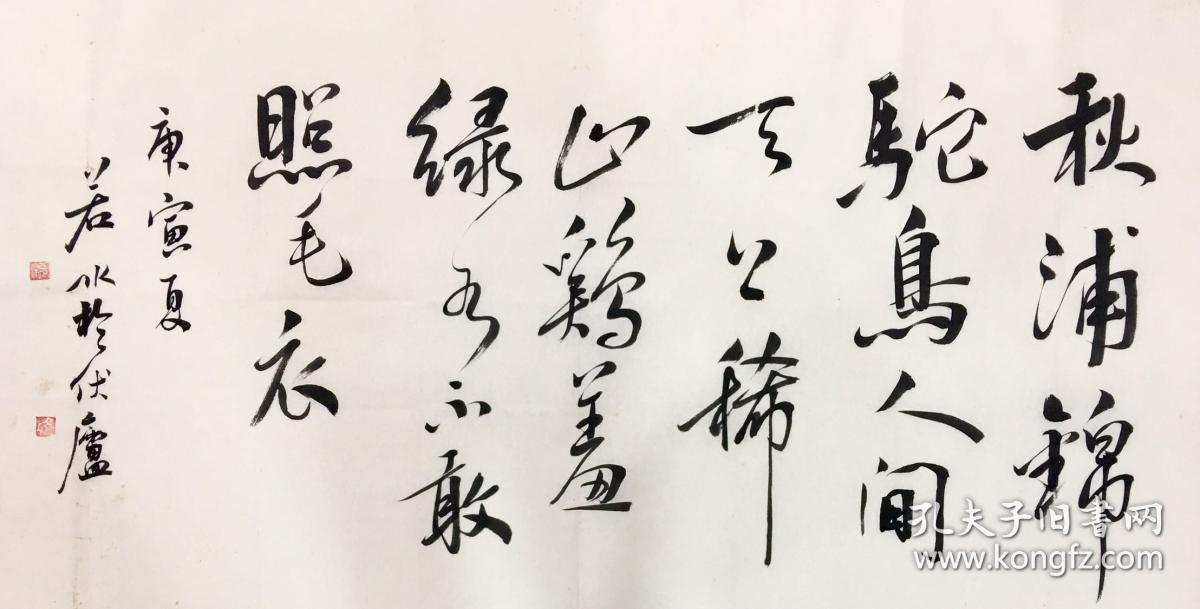 秋浦錦
駝鳥人間
天上稀
山鷄羞
緑水不敢
照毛衣
庚寅夏
若水於伏廬
孔夫子旧书网
www.kongfz.com